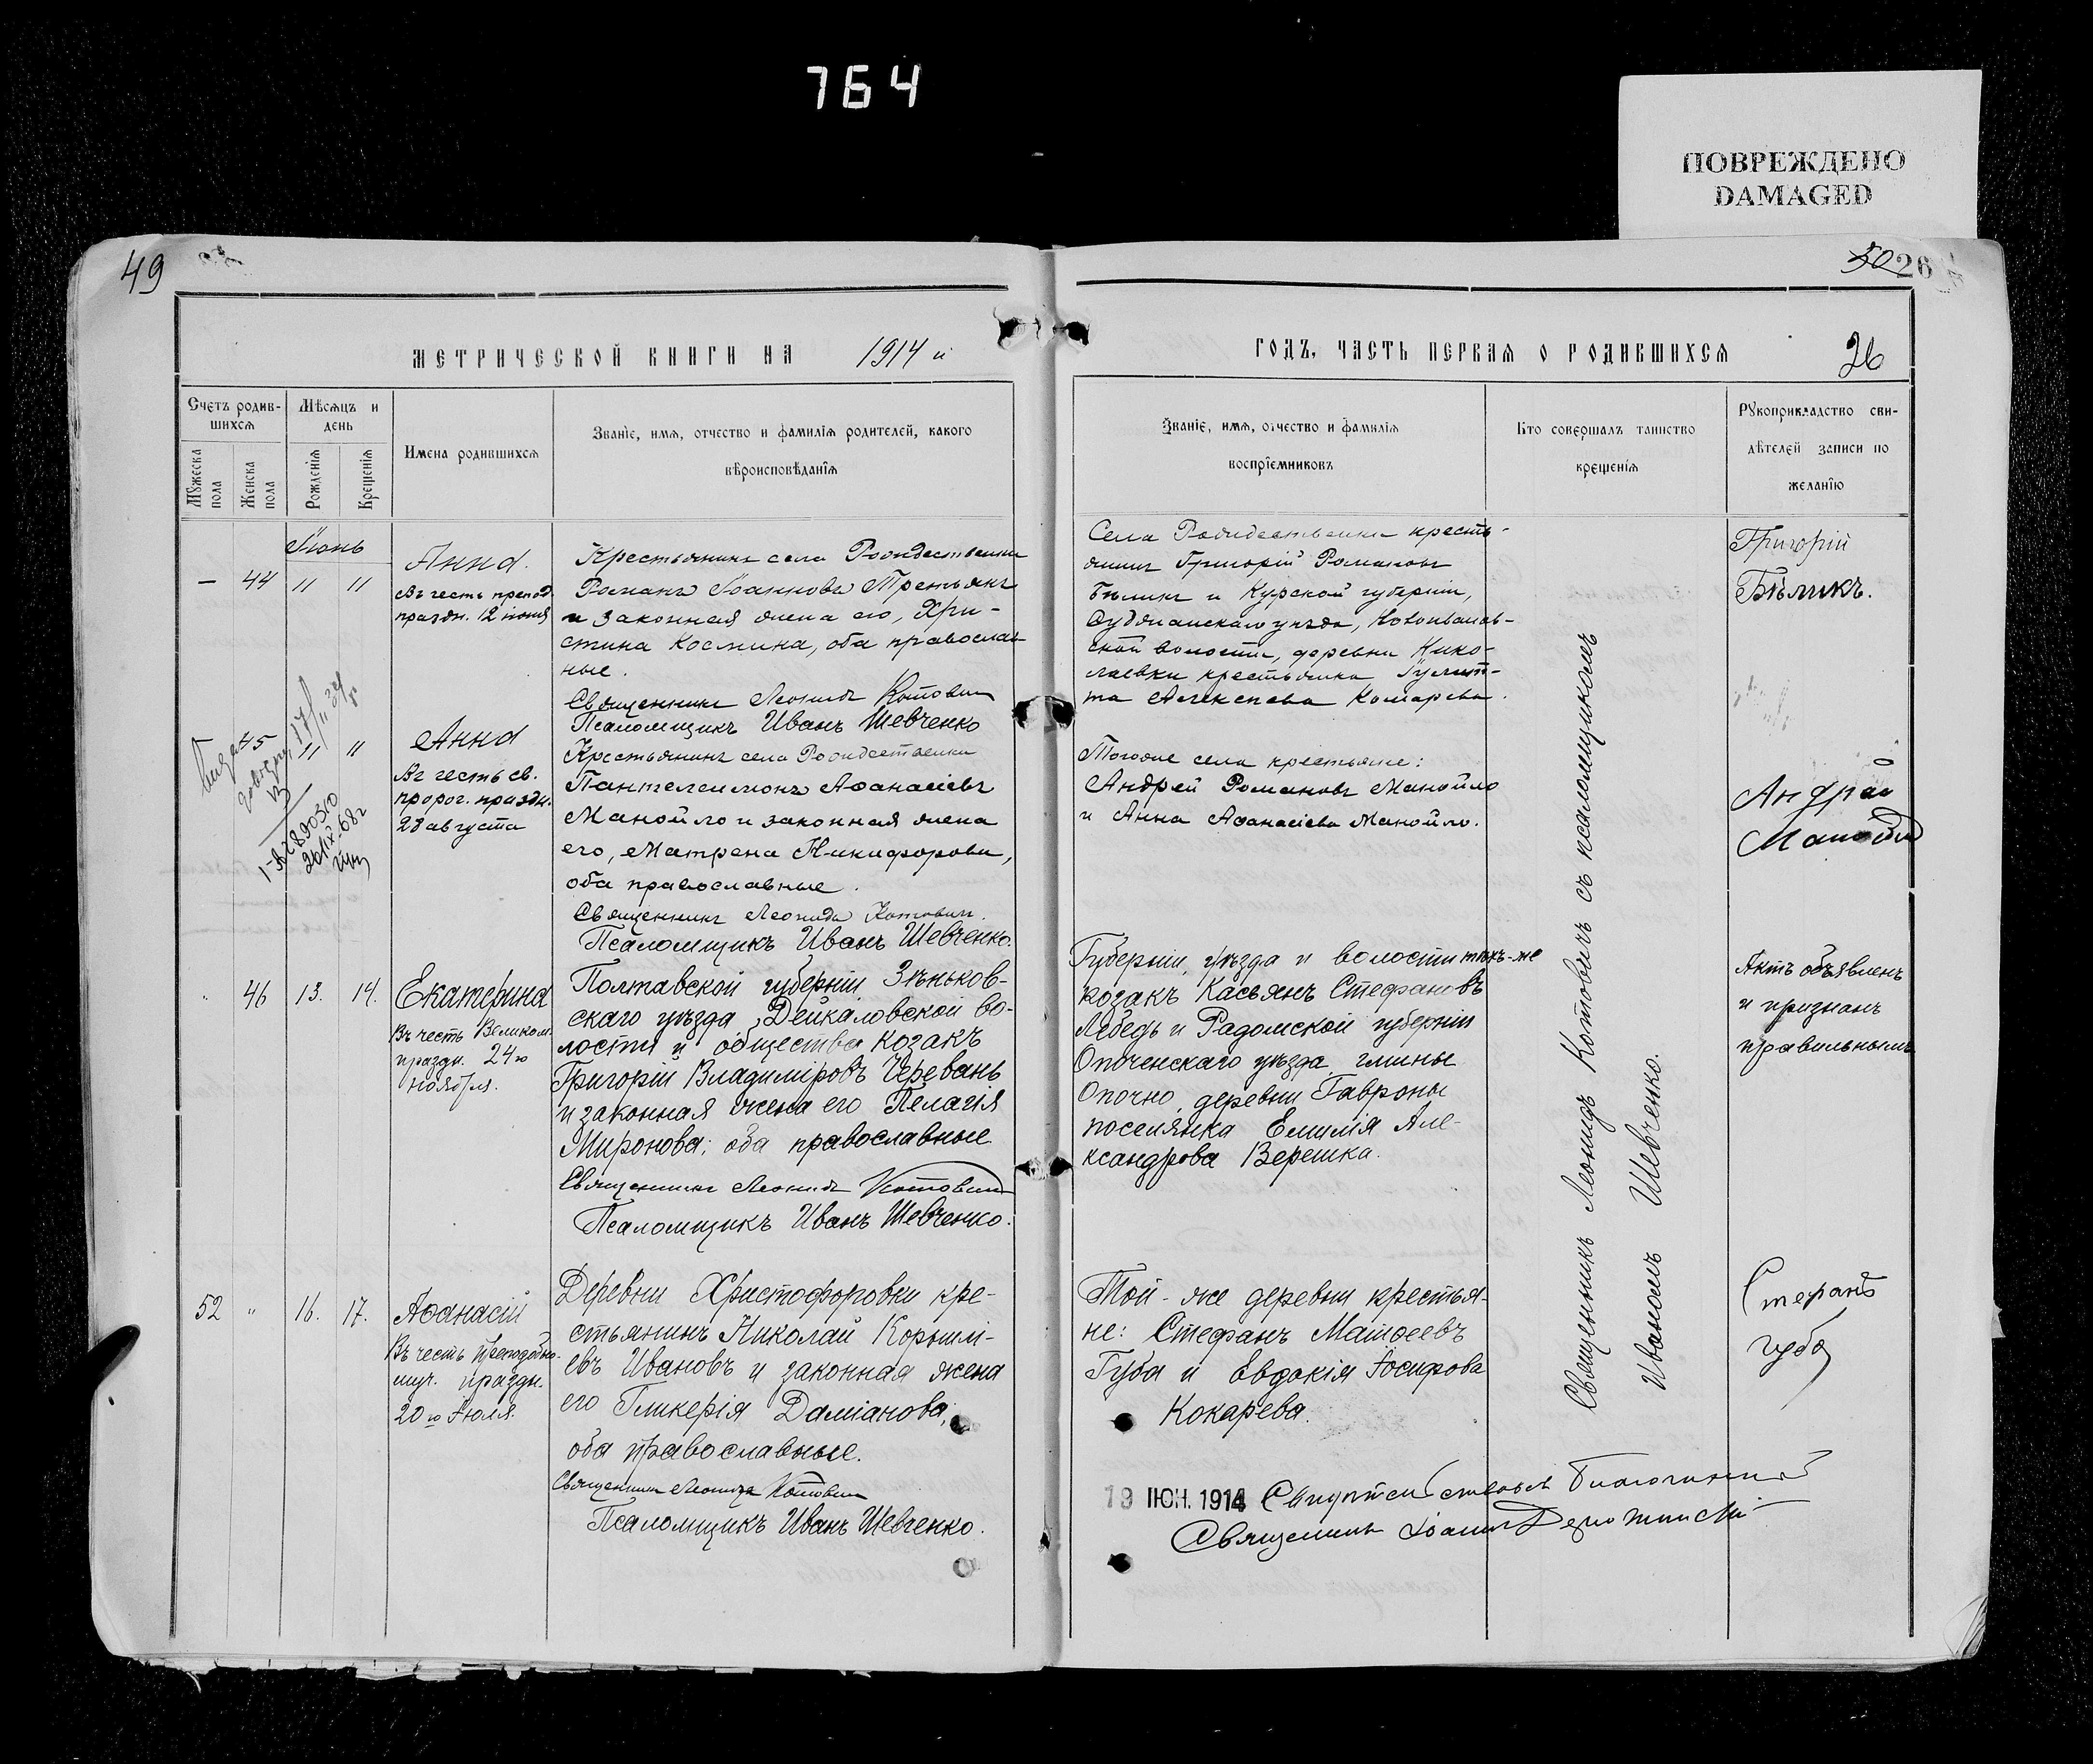 764
ПОВРЕЖДЕНО
DAMAGED
49
50 26
МЕТРИЧЕСКОЙ КНИГИ НА 1914 й
ГОДЪ, ЧАСТЬ ПЕРВАЯ О РОДИВШИХСЯ
26
Счетъ родив-
шихся
Мѣсяцъ и
день
Мужеска
пола
Женска
пола
Рожденія
Крещенія
Имена родившихся
Званіе, имя, отчество и фамилія родителей, какого
вѣроисповѣданія
Званіе, имя, отчество и фамилія
воспріемниковъ
Кто совершалъ таинство
крещенія
Рукоприкладство сви-
дѣтелей записи по
желанію
Іюнь
— 44 11 11
Анна.
Въ честь препод.
праздн. 12 іюня
Крестьянинъ села Рождественки
Романъ Іоанновъ Третьякъ
и законная жена его, Хри-
стина Космина, оба православ-
ные.
Священникъ Леонидъ Котовичъ
Псаломщикъ Иванъ Шевченко
Села Рождественки кресть-
янинъ Григорій Романовъ
Бѣликъ и Курской губерніи,
Суджанскаго уѣзда, Новоиванов-
ской волости, деревни Нико-
лаевки крестьянка
Алексѣева Комарева.
Григорій
Бѣликъ.
45 11 11
Анна
Въ честь св.
прор. праздн.
28 августа
Крестьянинъ села Рождественки
Пантелеимонъ Аѳанасіевъ
Манойло и законная жена
его, Матрена Никифорова,
оба православные.
Священникъ Леонидъ Котовичъ.
Псаломщикъ Иванъ Шевченко.
Тогоже села крестьяне:
Андрей Романовъ Манойло
и Анна Аѳанасіева Манойло.
Андрей
Манойло
" 46 13. 14.
Екатерина
Въ честь Великом.
праздн. 24го
ноября.
Полтавской губерніи Зѣньков-
скаго уѣзда, Дейкаловской во-
лости и общества козакъ
Григорій Владиміровъ Черевань
и законная жена его Пелагія
Миронова; оба православные
Священникъ Леонидъ Котовичъ
Псаломщикъ Иванъ Шевченко.
Губерніи, уѣзда и волости тѣхъ-же
козакъ Касьянъ Стефановъ
Лебедь и Радомской губерніи
Опоченскаго уѣзда, гмины
Опочно, деревни Гавроны
поселянка Емилія Але-
ксандрова Верешка.
Актъ объявленъ
и признанъ
правильнымъ
52 " 16. 17.
Аѳанасій
Въ честь Преподобно-
муч. праздн.
20го Іюля.
Деревни Христофоровки кре-
стьянинъ Николай Корнилі-
евъ Ивановъ и законная жена
его Гликерія Даміанова,
оба православные.
Священникъ Леонидъ Котовичъ
Псаломщикъ Иванъ Шевченко.
Той-же деревни крестья-
не: Стефанъ Матѳеевъ
Губа и Евдокія Іосифова
Кокарева.
Стефанъ
Губа
Священникъ Леонидъ Котовичъ съ псаломщикомъ
Иваномъ Шевченко.
19 ІЮН. 1914 Благочинный
Священникъ Іоаннъ